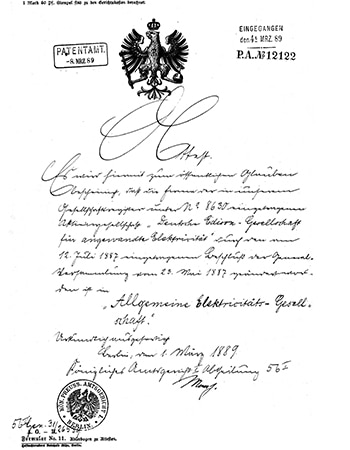 1 Mark 50 Pf. Stempel sind zu den Gerichtskosten berechnet.
PATENTAMT.
-8. MRZ. 89
EINGEGANGEN
den 4t MRZ. 89
P.A. № 12122
Attest.
Es wird hiermit zum öffentlichen Glauben
bescheinigt, daß die Firma der in unserem
Gesellschaftsregister unter No 8630 eingetragenen
Aktiengesellschaft „Deutsche Edison-Gesellschaft
für angewandte Elektricität" durch den am
12. Juli 1887 eingetragenen Beschluß der General-
Versammlung vom 23. Mai 1887 geändert wor-
den ist in
„Allgemeine Elektricitäts-Gesell-
schaft."
Urkundlich ausgefertigt
Berlin, den 1. März 1889
Königliches Amtsgericht I. Abtheilung 56 I
KÖN. PREUSS. AMTSGERICHT I
BERLIN.
Formular No. 11.